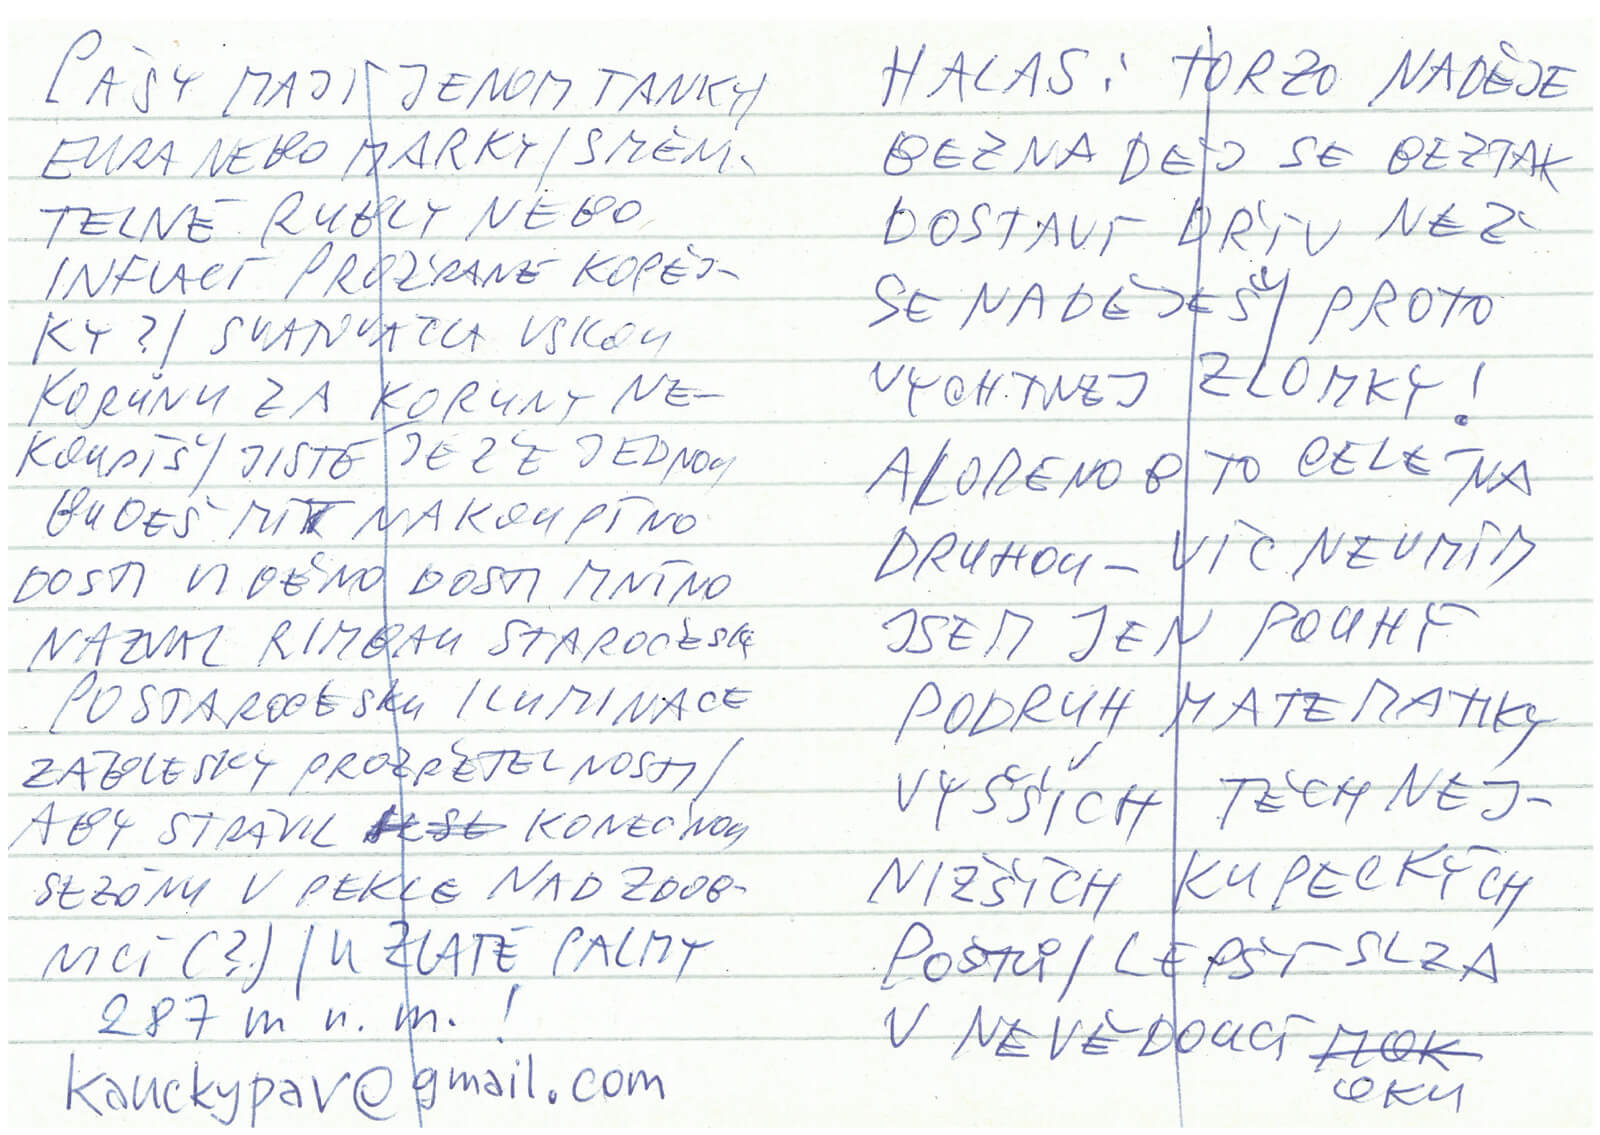 PÁŠY MAJÍ JENOM TANKY
EURA NEBO MARKY/SMĚN-
TELNÉ RUBLY NEBO
INFLACÍ PROŽRANÉ KOPĚJ-
KY?/ VSKOU
KORUNU ZA KORUNY NE-
KOUPÍŠ/JISTÉ JE ŽE JEDNOU
BUDEŠ MÍT NAKOUPÍNO
DOSTI VIDĚNO DOSTI MNÍNO
NAZVAL RIMBAU STAROČESKY
POSTAROČESKU ILUMINACE
ZÁBLESKY PROZŘETELNOSTI/
ABY STRÁVIL SE KONEČNOU
SEZÓNU V PEKLE NAD ZDOB-
NICÍ (?)/U ZLATÉ PALMY
287 m n. m. !
kauckypav@gmail.com
HALAS: TORZO NADĚJE
BEZNADĚJ SE BEZTAK
DOSTAVÍ DŘÍV NEŽ
SE NADĚJEŠ/ PROTO
VYCHTNEJ ZLOMKY!
A/OREM B TO CELÉ NA
DRUHOU - VÍC NEUMÍM
JSEM JEN POUHÝ
PODRUH MATEMATIKY
VYŠŠÍCH TĚCH NEJ-
NIŽŠÍCH KUPECKÝCH
POČTŮ/LEPŠÍ SLZA
V NEVĚDOUCÍ MOK
OKU